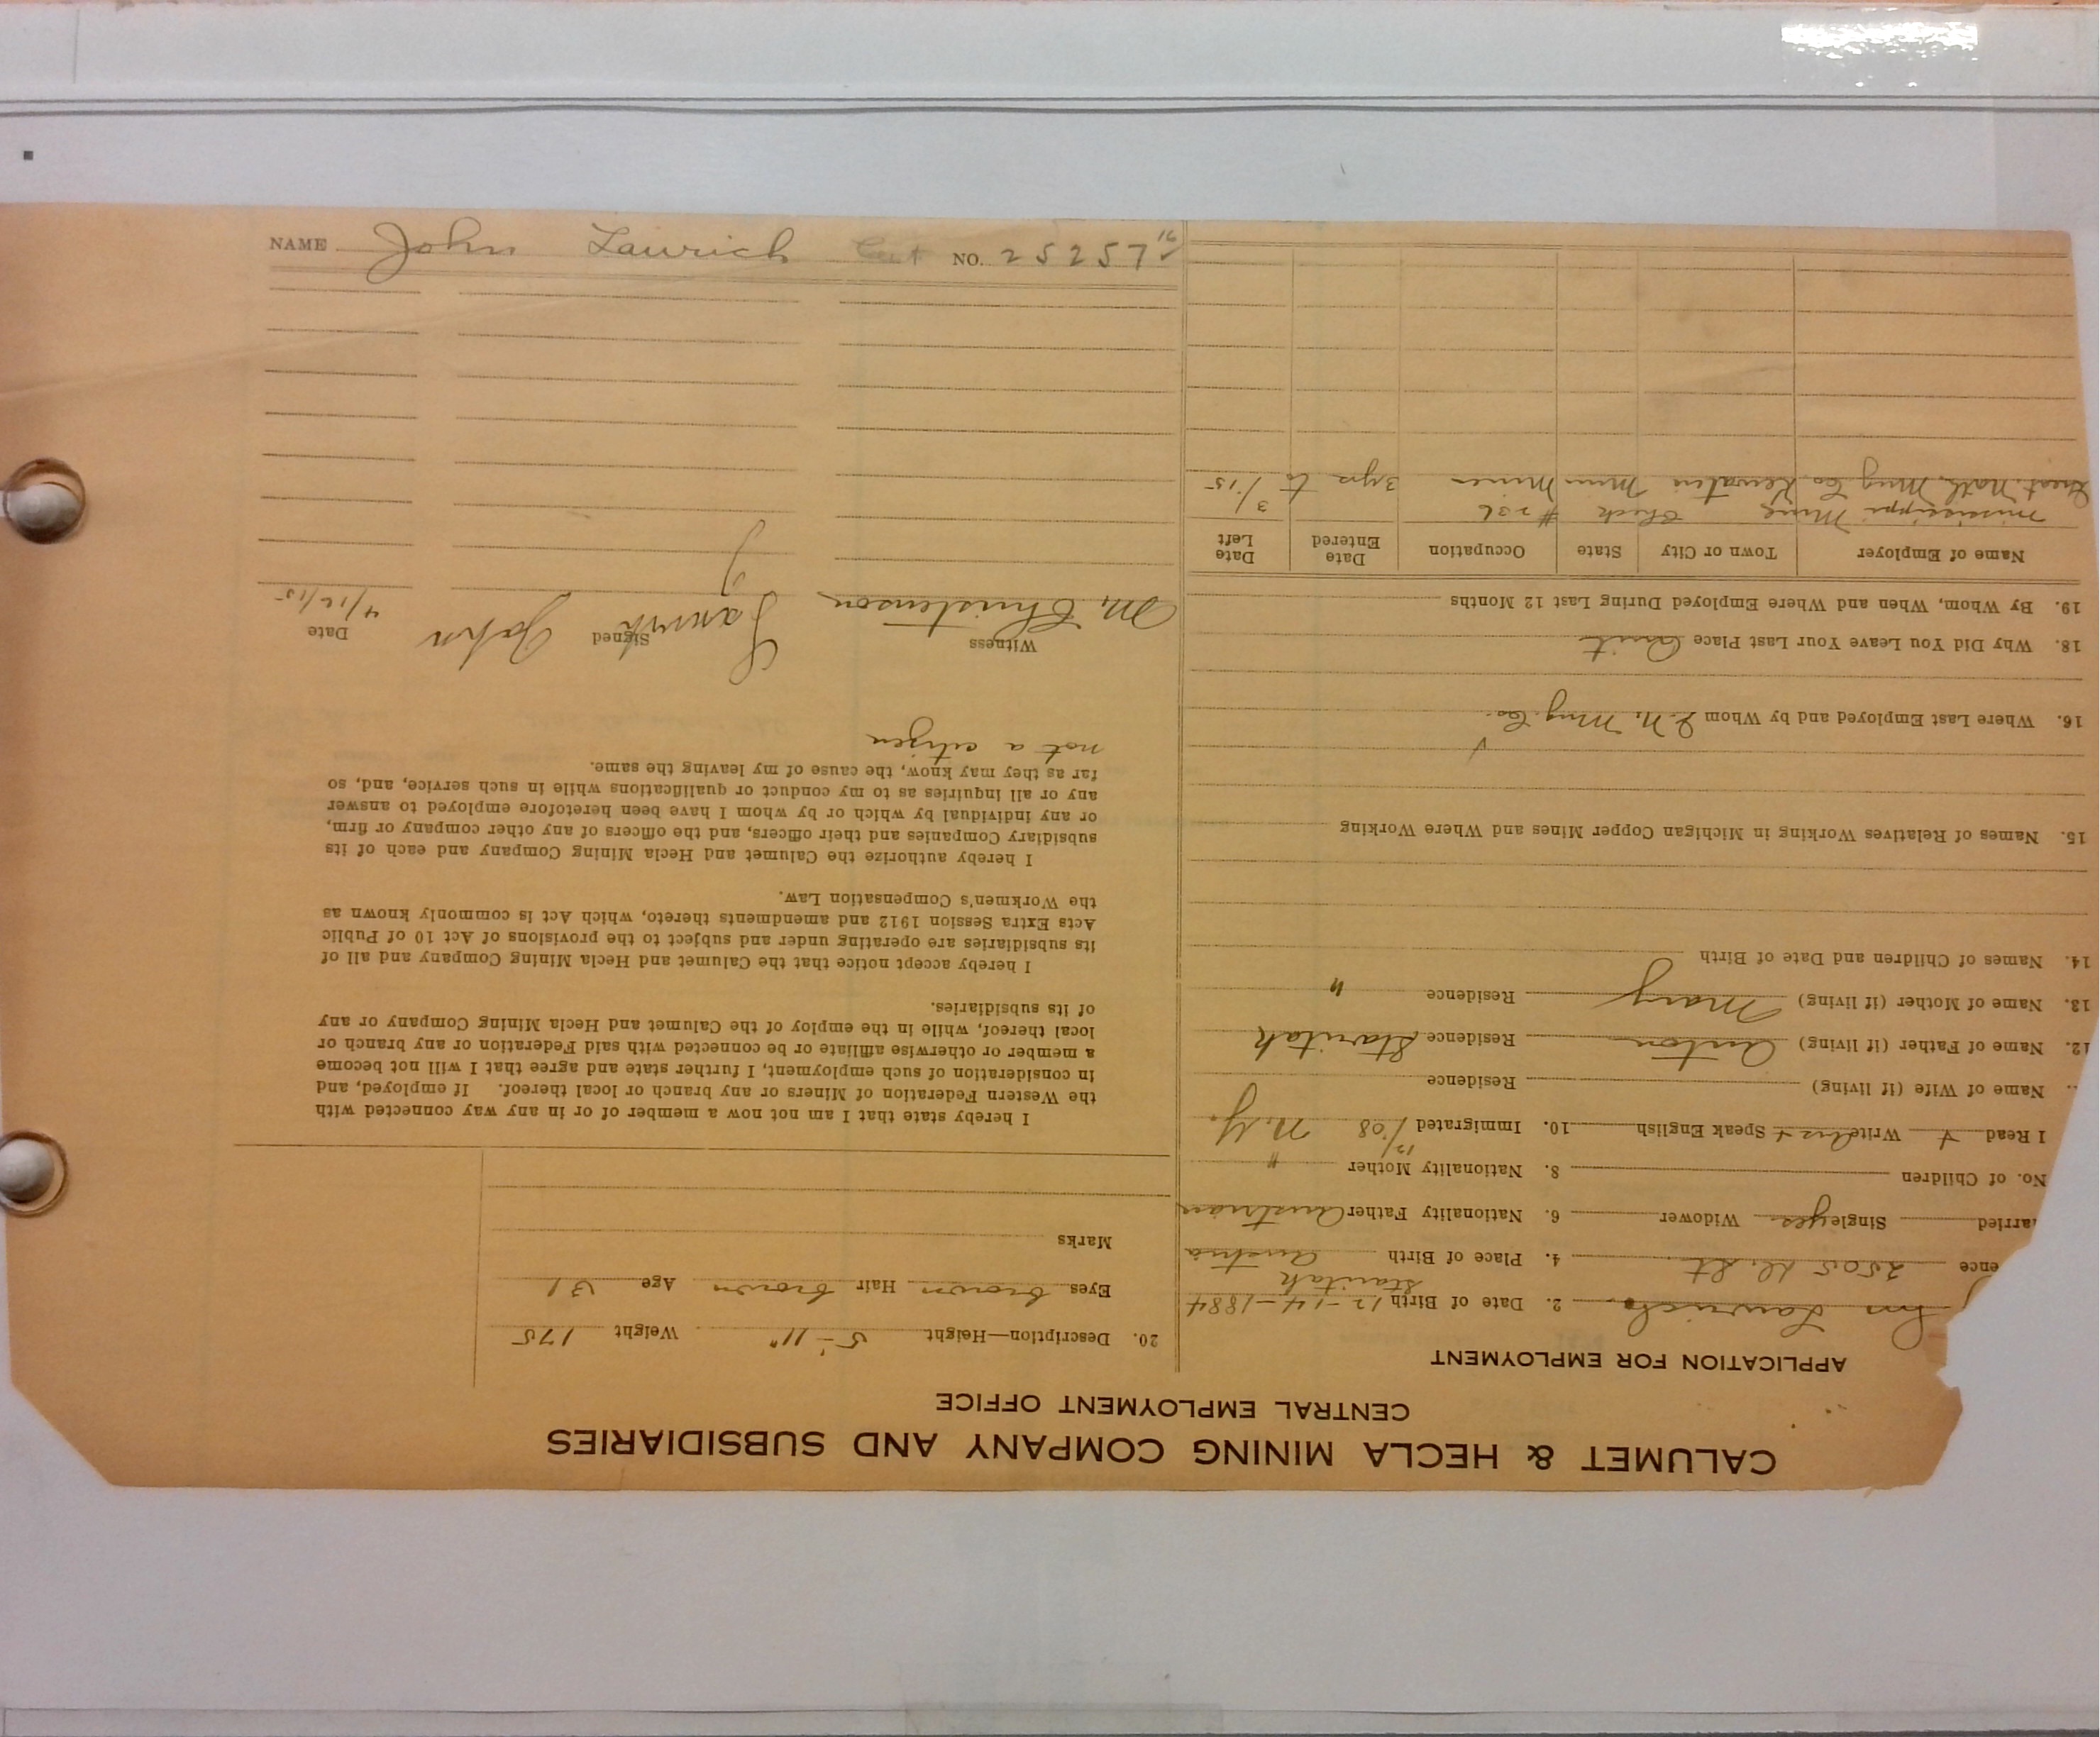 CALUMET & HECLA MINING COMPANY AND SUBSIDIARIES
CENTRAL EMPLOYMENT OFFICE
APPLICATION FOR EMPLOYMENT
Lawrich 2. Date of Birth 12-14-1884
ence 2505 St 4. Place of Birth Staritah Austria
arried Single yes Widower 6. Nationality Father Austrian
No. of Children 8. Nationality Mother "
I Read + Write Aus + Speak English 10. Immigrated 12/08 N.Y.
Name of Wife (if living) Residence
12. Name of Father (if living) Anton Residence Staritah
13. Name of Mother (if living) Mary Residence "
14. Names of Children and Date of Birth
15. Names of Relatives Working in Michigan Copper Mines and Where Working
16. Where Last Employed and by Whom G. N. Mng. Co.
18. Why Did You Leave Your Last Place Quit
19. By Whom, When and Where Employed During Last 12 Months
Name of Employer Town or City State Occupation Date Entered Date Left
Mississippi Mine Check # 236
Great Noth. Mng Co. Kewatin Minn Miner 3 yrs to 3/15
20. Description—Height 5'-11" Weight 175
Eyes brown Hair brown Age 31
Marks
I hereby state that I am not now a member of or in any way connected with
the Western Federation of Miners or any branch or local thereof. If employed, and
in consideration of such employment, I further state and agree that I will not become
a member or otherwise affiliate or be connected with said Federation or any branch or
local thereof, while in the employ of the Calumet and Hecla Mining Company or any
of its subsidiaries.
I hereby accept notice that the Calumet and Hecla Mining Company and all of
its subsidiaries are operating under and subject to the provisions of Act 10 of Public
Acts Extra Session 1912 and amendments thereto, which Act is commonly known as
the Workmen's Compensation Law.
I hereby authorize the Calumet and Hecla Mining Company and each of its
subsidiary Companies and their officers, and the officers of any other company or firm,
or any individual by which or by whom I have been heretofore employed to answer
any or all inquiries as to my conduct or qualifications while in such service, and, so
far as they may know, the cause of my leaving the same.
not a citizen
Witness Signed Date
M. Christenson John 4/12/15
NAME John Lawrich NO. 25257 16